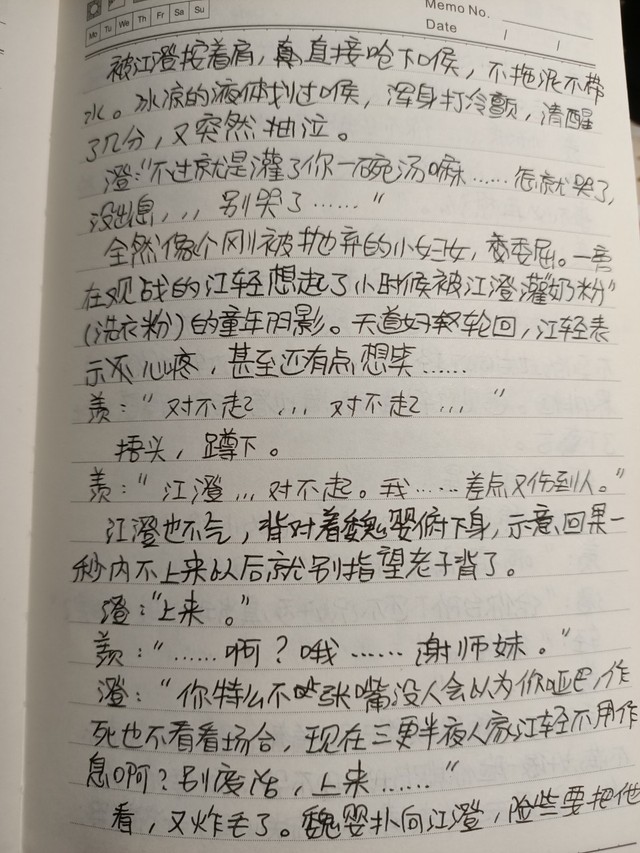 Memo No.
Mo Tu We Th Fr Sa Su
Date / /
被江澄按着肩，真直接呛下喉，不拖泥不带
水。冰凉的液体划过喉，浑身打冷颤，清醒
了几分，又突然抽泣。
澄："不过就是灌了你一碗汤嘛……怎就哭了，
没出息，，，别哭了……"
全然像个刚被抛弃的小妇女，委委屈。一旁
在观战的江轻想起了小时候被江澄灌"奶粉"
(洗衣粉)的童年阴影。天道好轮回，江轻表
示不心疼，甚至还有点想笑……
羡："对不起 ... 对不起 ... "
捂头，蹲下。
羡："江澄 ... 对不起。我……差点又伤到人。"
江澄也不气，背对着魏婴俯下身，示意回果一
秒内不上来以后就别指望老子背了。
澄："上来。"
羡："……啊？哦……谢师妹。"
澄："你特么不张嘴没人会以为你哑巴，作
死也不看看场合，现在三更半夜人家江轻不用作
息啊？别废话，上来……"
看，又炸毛了。魏婴扑向江澄，险些要把他